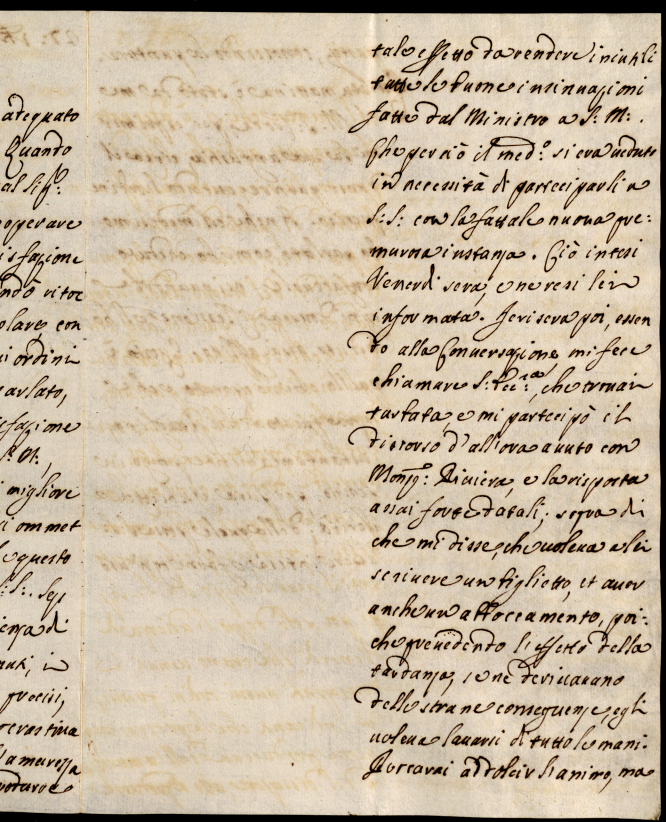 adequato
Quando
al Sig.r
operare
isfazione
ndò vitoc
olare, con
ui ordini
arlato,
sfazione
S. M.,
i migliore
vi ommet
questo
S. S.
enza di
nuti, in
precisi,
amarezza
tale effetto da rendere inutili
tutte le buone insinuazioni
fatte dal Ministro a S: M: .
Che perciò il med:o si era veduto
in necessità di partecipparli a
S: S: con la fattale nuova pre:
murosa instanza. Ciò intesi
Venerdì sera, e ne resi lei
informata. Jeri sera poi, essen
do alla Conversazione, mi fece
chiamare S: Ecc:za, che trovai
tartata, e mi partecipò il
discorso d'all'ora avuto con
Monsg.: Riviera, e la risposta
assai forte datali; sopra di
che mi disse, che voleva a lei
scrivere un figlietto, et aver
anche un abboccamento, poi:
che prevedendo l'effetto della
tardanza, se ne derivavano
delle strane conseguenze, egli
voleva lavarsi di tutto le mani.
Procurai addolcir l'animo, ma